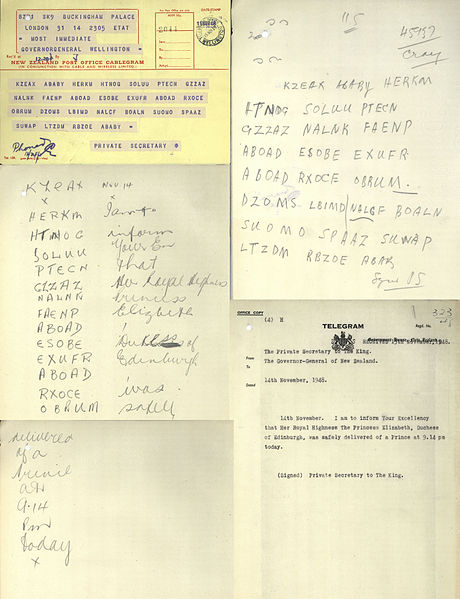 BZ01 SK9 BUCKINGHAM PALACE
LONDON 31 14 2305 ETAT
" MOST IMMEDIATE
GOVERNORGENERAL WELLINGTON "
DATE-STAMP
NEW ZEALAND POST OFFICE CABLEGRAM
(IN CONJUNCTION WITH CABLE AND WIRELESS LIMITED.)
KZEAX ABABY HERKM HTNOG SOLUU PTECN GZZAZ
NALNK FAENP ABOAD ESOBE EXUFR ABOAD RXOCE
OBRUM DZOMS LBIMD NALCF BOALN SUOMO SPAAZ
SUWAP LTZDM RBZOE ABABY "
PRIVATE SECRETARY
Phoned
KZEAX NOV 14
x x
HERKM I am to
HTNOG inform
SOLUU Your Ex
PTECN that
GZZAZ Her Royal Highness
NALNK Princess
FAENP Elizabeth
ABOAD
ESOBE Duchess of
EXUFR Edinburgh
ABOAD
RXOCE was
OBRUM safely
delivered
of a
Prince
at
9.14
Pm
today
x
115
45197
KZEAX ABABY HERKM
HTNOG SOLUU PTECN
GZZAZ NALNK FAENP
ABOAD ESOBE EXUFR
ABOAD RXOCE OBRUM
DZOMS LBIMD NALCF BOALN
SUOMO SPAAZ SUWAP
LTZDM RBZOE ABAB
OFFICE COPY
(4) H
323
TELEGRAM
Regd. No.
Received 15th November, 1948.
From
The Private Secretary to The King.
To
The Governor-General of New Zealand.
Dated
14th November, 1948.
14th November. I am to inform Your Excellency
that Her Royal Highness The Princess Elizabeth, Duchess
of Edinburgh, was safely delivered of a Prince at 9.14 pm
today.
(Signed) Private Secretary to The King.